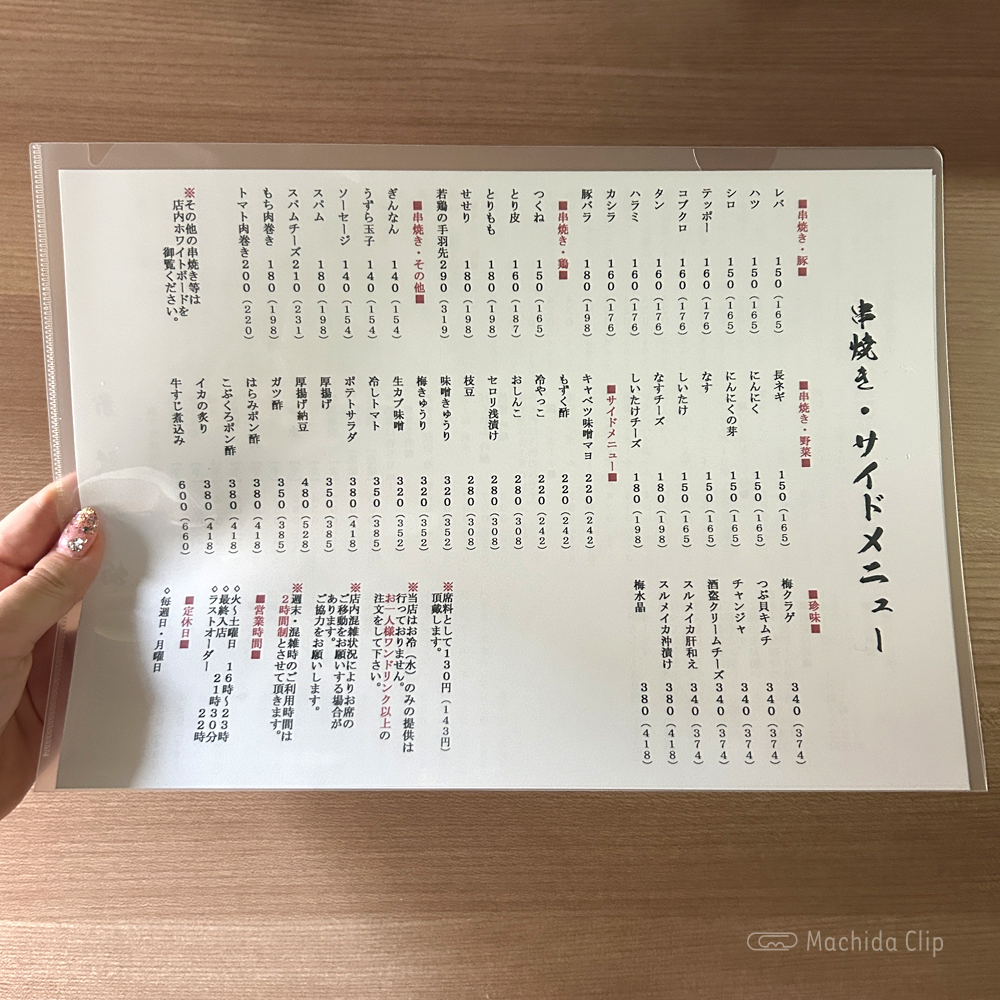 串焼き・サイドメニュー
■串焼き・豚■
レバ 150(165)
ハツ 150(165)
シロ 150(165)
テッポー 160(176)
コブクロ 160(176)
タン 160(176)
ハラミ 160(176)
カシラ 160(176)
豚バラ 180(198)
■串焼き・鶏■
つくね 150(165)
とり皮 160(187)
とりもも 180(198)
せせり 180(198)
若鶏の手羽先290(319)
■串焼き・その他■
ぎんなん 140(154)
うずら玉子 140(154)
ソーセージ 140(154)
スパム 180(198)
スパムチーズ210(231)
もち肉巻き 180(198)
トマト肉巻き200(220)
※その他の串焼き等は
店内ホワイトボードを
御覧ください。
■串焼き・野菜■
長ネギ 150(165)
にんにく 150(165)
にんにくの芽 150(165)
なす 150(165)
しいたけ 150(165)
なすチーズ 180(198)
しいたけチーズ 180(198)
■サイドメニュー■
キャベツ味噌マヨ 220(242)
もずく酢 220(242)
冷やっこ 220(242)
おしんこ 280(308)
セロリ浅漬け 280(308)
枝豆 280(308)
味噌きゅうり 320(352)
梅きゅうり 320(352)
生カブ味噌 320(352)
冷しトマト 350(385)
ポテトサラダ 380(418)
厚揚げ 350(385)
厚揚げ納豆 480(528)
ガツ酢 350(385)
はらみポン酢 380(418)
こぶくろポン酢 380(418)
イカの炙り 380(418)
牛すじ煮込み 600(660)
■珍味■
梅クラゲ 340(374)
つぶ貝キムチ 340(374)
チャンジャ 340(374)
酒盗クリームチーズ340(374)
スルメイカ肝和え 340(374)
スルメイカ沖漬け 380(418)
梅水晶 380(418)
※席料として130円(143円)
頂戴します。
※当店はお冷(水)のみの提供は
行っておりません。
お一人様ワンドリンク以上の
注文をして下さい。
※店内混雑状況によりお席の
ご移動をお願いする場合が
あります。
ご協力をお願いします。
※週末・混雑時のご利用時間は
2時間制とさせて頂きます。
■営業時間■
◇火〜土曜日 16時〜23時
◇最終入店 21時30分
◇ラストオーダー 22時
■定休日■
◇毎週日・月曜日
Machida Clip